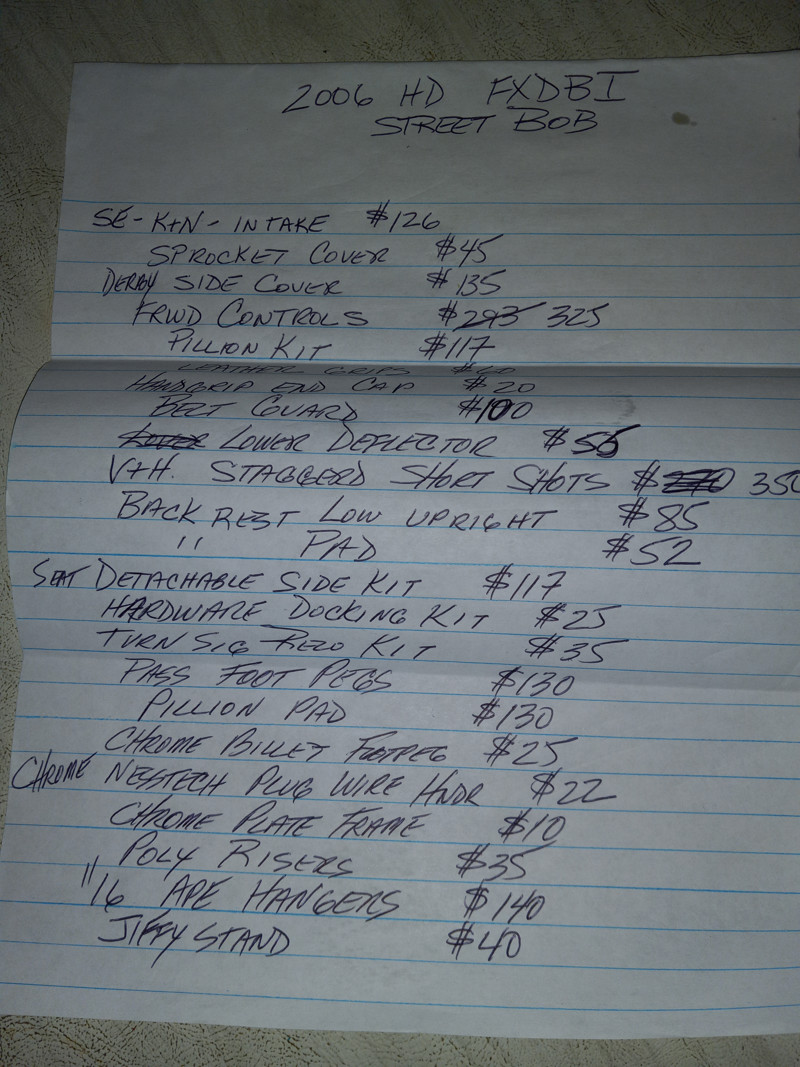 2006 HD FXDBI
STREET BOB
SE-K+N-INTAKE $126
SPROCKET COVER $45
DERBY SIDE COVER $135
FRWD CONTROLS $293 325
PILLION KIT $117
LEATHER GRIPS
HANDGRIP END CAP $20
BELT GUARD $100
LOWER DEFLECTOR $55
V+H. STAGGERD SHORT SHOTS $ 350
BACK REST LOW UPRIGHT $85
" PAD $52
SEAT DETACHABLE SIDE KIT $117
HARDWARE DOCKING KIT $25
TURN SIG KIT $35
PASS FOOT PEGS $130
PILLION PAD $130
CHROME BILLET FOOTPEG $25
CHROME PLUG WIRE HNDR $22
CHROME PLATE FRAME $10
POLY RISERS $35
"16 APE HANGERS $140
JIFFY STAND $40